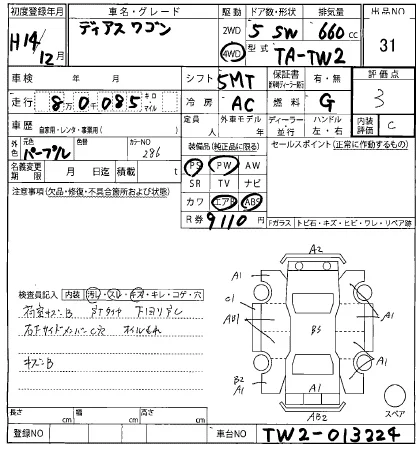 初度登録年月 車名・グレード 駆動 ドア数・形状 排気量 出品NO
H14/12月 ディアス ワゴン 2WD 4WD 5 SW 660cc 31
型式 TA-TW2
車検 年 月 シフト 5MT 保証書 有・無 評価点
走行 8万0千085 キロ・マイル 冷房 AC 燃料 G 3
車歴 自家用・レンタ・事業用( ) 定員 人 外車モデル 年 ディーラー・並行 ハンドル 左・右 内装 C
外色 元色 パープル 色替 カラーNO 286 装備品(純正品に限る) セールスポイント(正常に作動するもの)
名義変更期限 月 日迄 積載 t PS PW AW
注意事項(欠品・修復・不具合箇所および状態) SR TV ナビ
カワ エアB ABS
R券 9110円 Fガラス トビ石・キズ・ヒビ・ワレ・リペア跡
A2
A1 A1
検査員記入 内装 汚れ・スレ・キズ・キレ・コゲ・穴 C1
AU1 BS A1
キズ B
B2 A1 A1 A1
A1
AB2 スペア
長さ cm 幅 cm 高さ cm
登録NO 車台NO TW2-013224